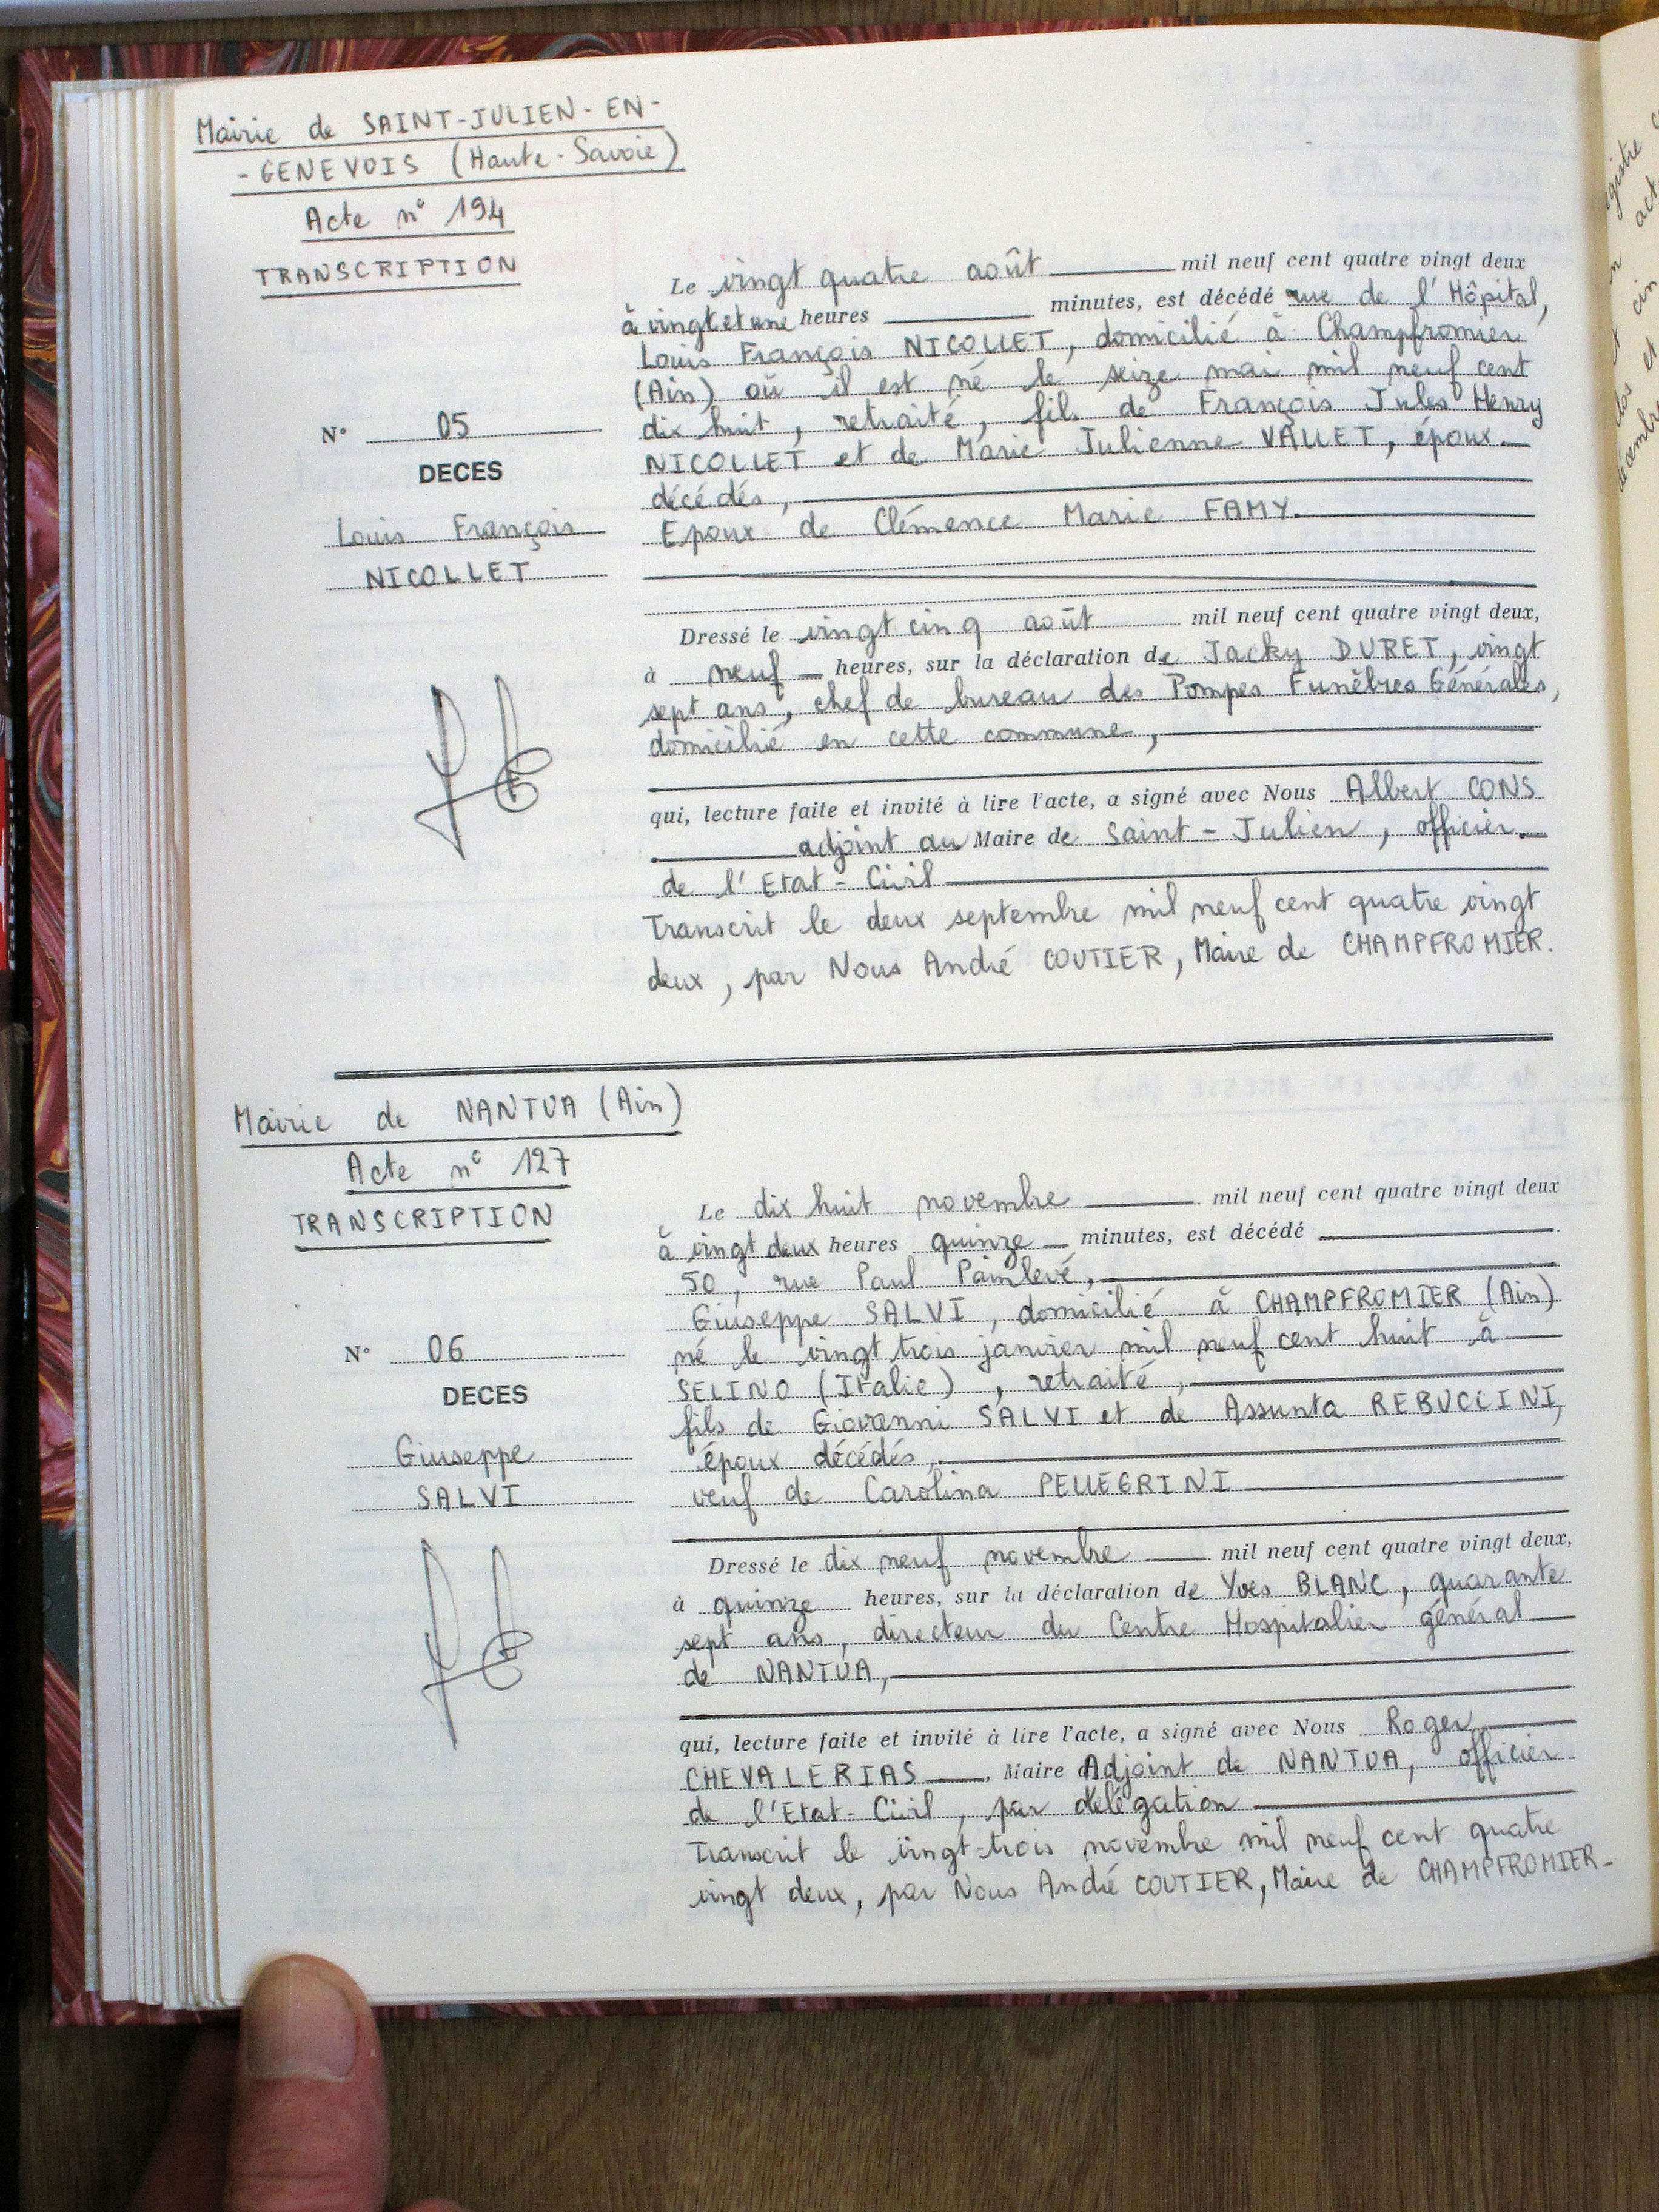 Mairie de SAINT-JULIEN-EN-
-GENEVOIS (Haute-Savoie)
Acte n° 194
TRANSCRIPTION
Le vingt quatre août mil neuf cent quatre vingt deux
à vingt et une heures minutes, est décédé rue de l'Hôpital,
Louis François NICOLLET, domicilié à Champfromier
(Ain) où il est né le seize mai mil neuf cent
dix huit, retraité, fils de François Jules Henry
NICOLLET et de Marie Julienne VALLET, époux
décédés,
Epoux de Clémence Marie FAMY.
N° 05
DECES
Louis François
NICOLLET
Dressé le vingt cinq août mil neuf cent quatre vingt deux,
à neuf heures, sur la déclaration de Jacky DURET, vingt
sept ans, chef de bureau des Pompes Funèbres Générales,
domicilié en cette commune,
qui, lecture faite et invité à lire l'acte, a signé avec Nous Albert CONS
adjoint au Maire de Saint-Julien, officier
de l'Etat-Civil
Transcrit le deux septembre mil neuf cent quatre vingt
deux, par Nous André COUTIER, Maire de CHAMPFROMIER.
Mairie de NANTUA (Ain)
Acte n° 127
TRANSCRIPTION
Le dix huit novembre mil neuf cent quatre vingt deux
à vingt deux heures quinze minutes, est décédé
50, rue Paul Painlevé,
Giuseppe SALVI, domicilié à CHAMPFROMIER (Ain)
né le vingt trois janvier mil neuf cent huit à
SELINO (Italie), retraité,
fils de Giovanni SALVI et de Assunta REBUCCINI,
époux décédés,
veuf de Carolina PELLEGRINI
N° 06
DECES
Giuseppe
SALVI
Dressé le dix neuf novembre mil neuf cent quatre vingt deux,
à quinze heures, sur la déclaration de Yves BLANC, quarante
sept ans, directeur du Centre Hospitalier général
de NANTUA,
qui, lecture faite et invité à lire l'acte, a signé avec Nous Roger
CHEVALERIAS, Maire Adjoint de NANTUA, officier
de l'Etat-Civil, par délégation
Transcrit le vingt-trois novembre mil neuf cent quatre
vingt deux, par Nous André COUTIER, Maire de CHAMPFROMIER-